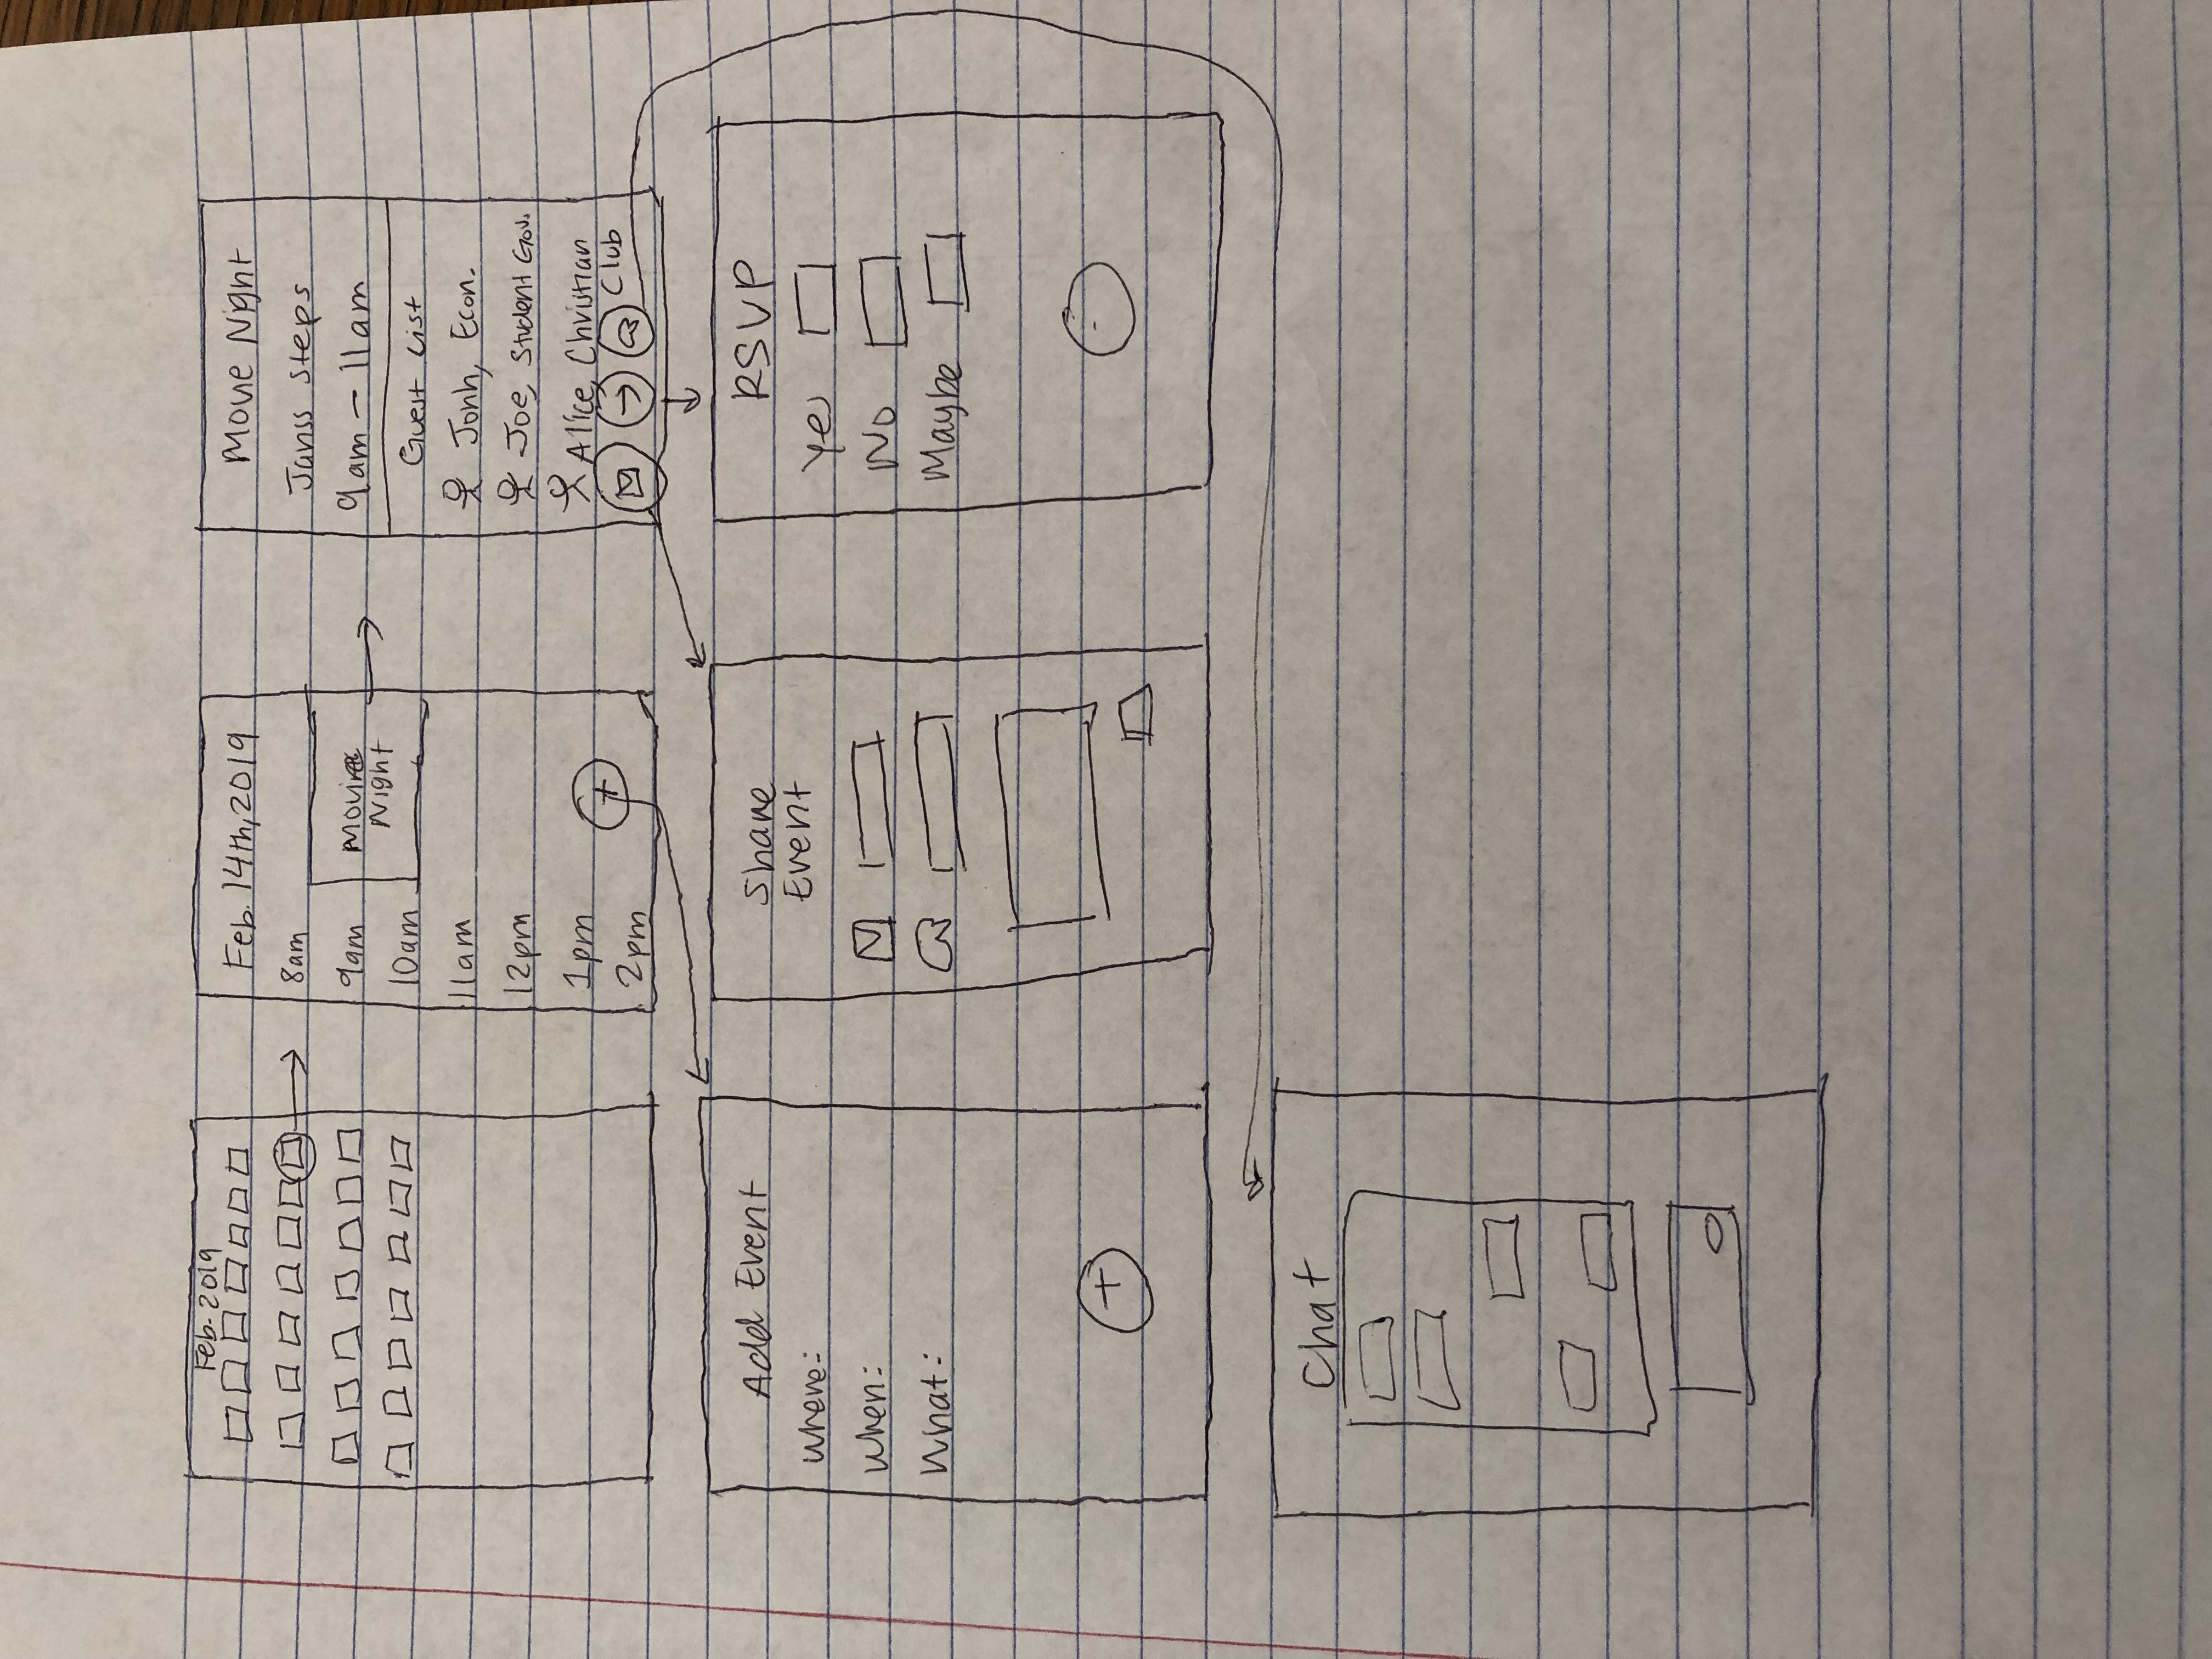 Feb. 2019
Feb. 14th, 2019
8am
9am
Movie
Night
10am
11am
12pm
1pm
+
2pm
Movie Night
Janss Steps
9am – 11am
Guest List
Jonh, Econ.
Joe, Student Gov.
Alice, Christian
Club
Add Event
Where:
When:
What:
+
Share
Event
RSVP
Yes
No
Maybe
Chat